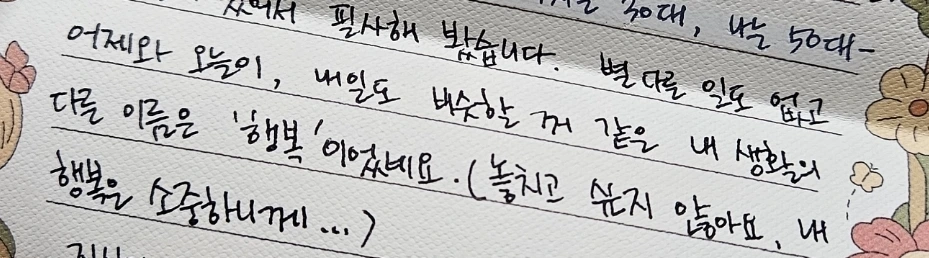 30대, 나는 50대-
있어서 필사해 봤습니다. 별 다를 일도 없고
어제와 오늘이, 내일도 비슷할 꺼 같은 내 생활의
다른 이름은 '행복'이었네요. (놓치고 싶지 않아요, 내
행복은 소중하니께...)